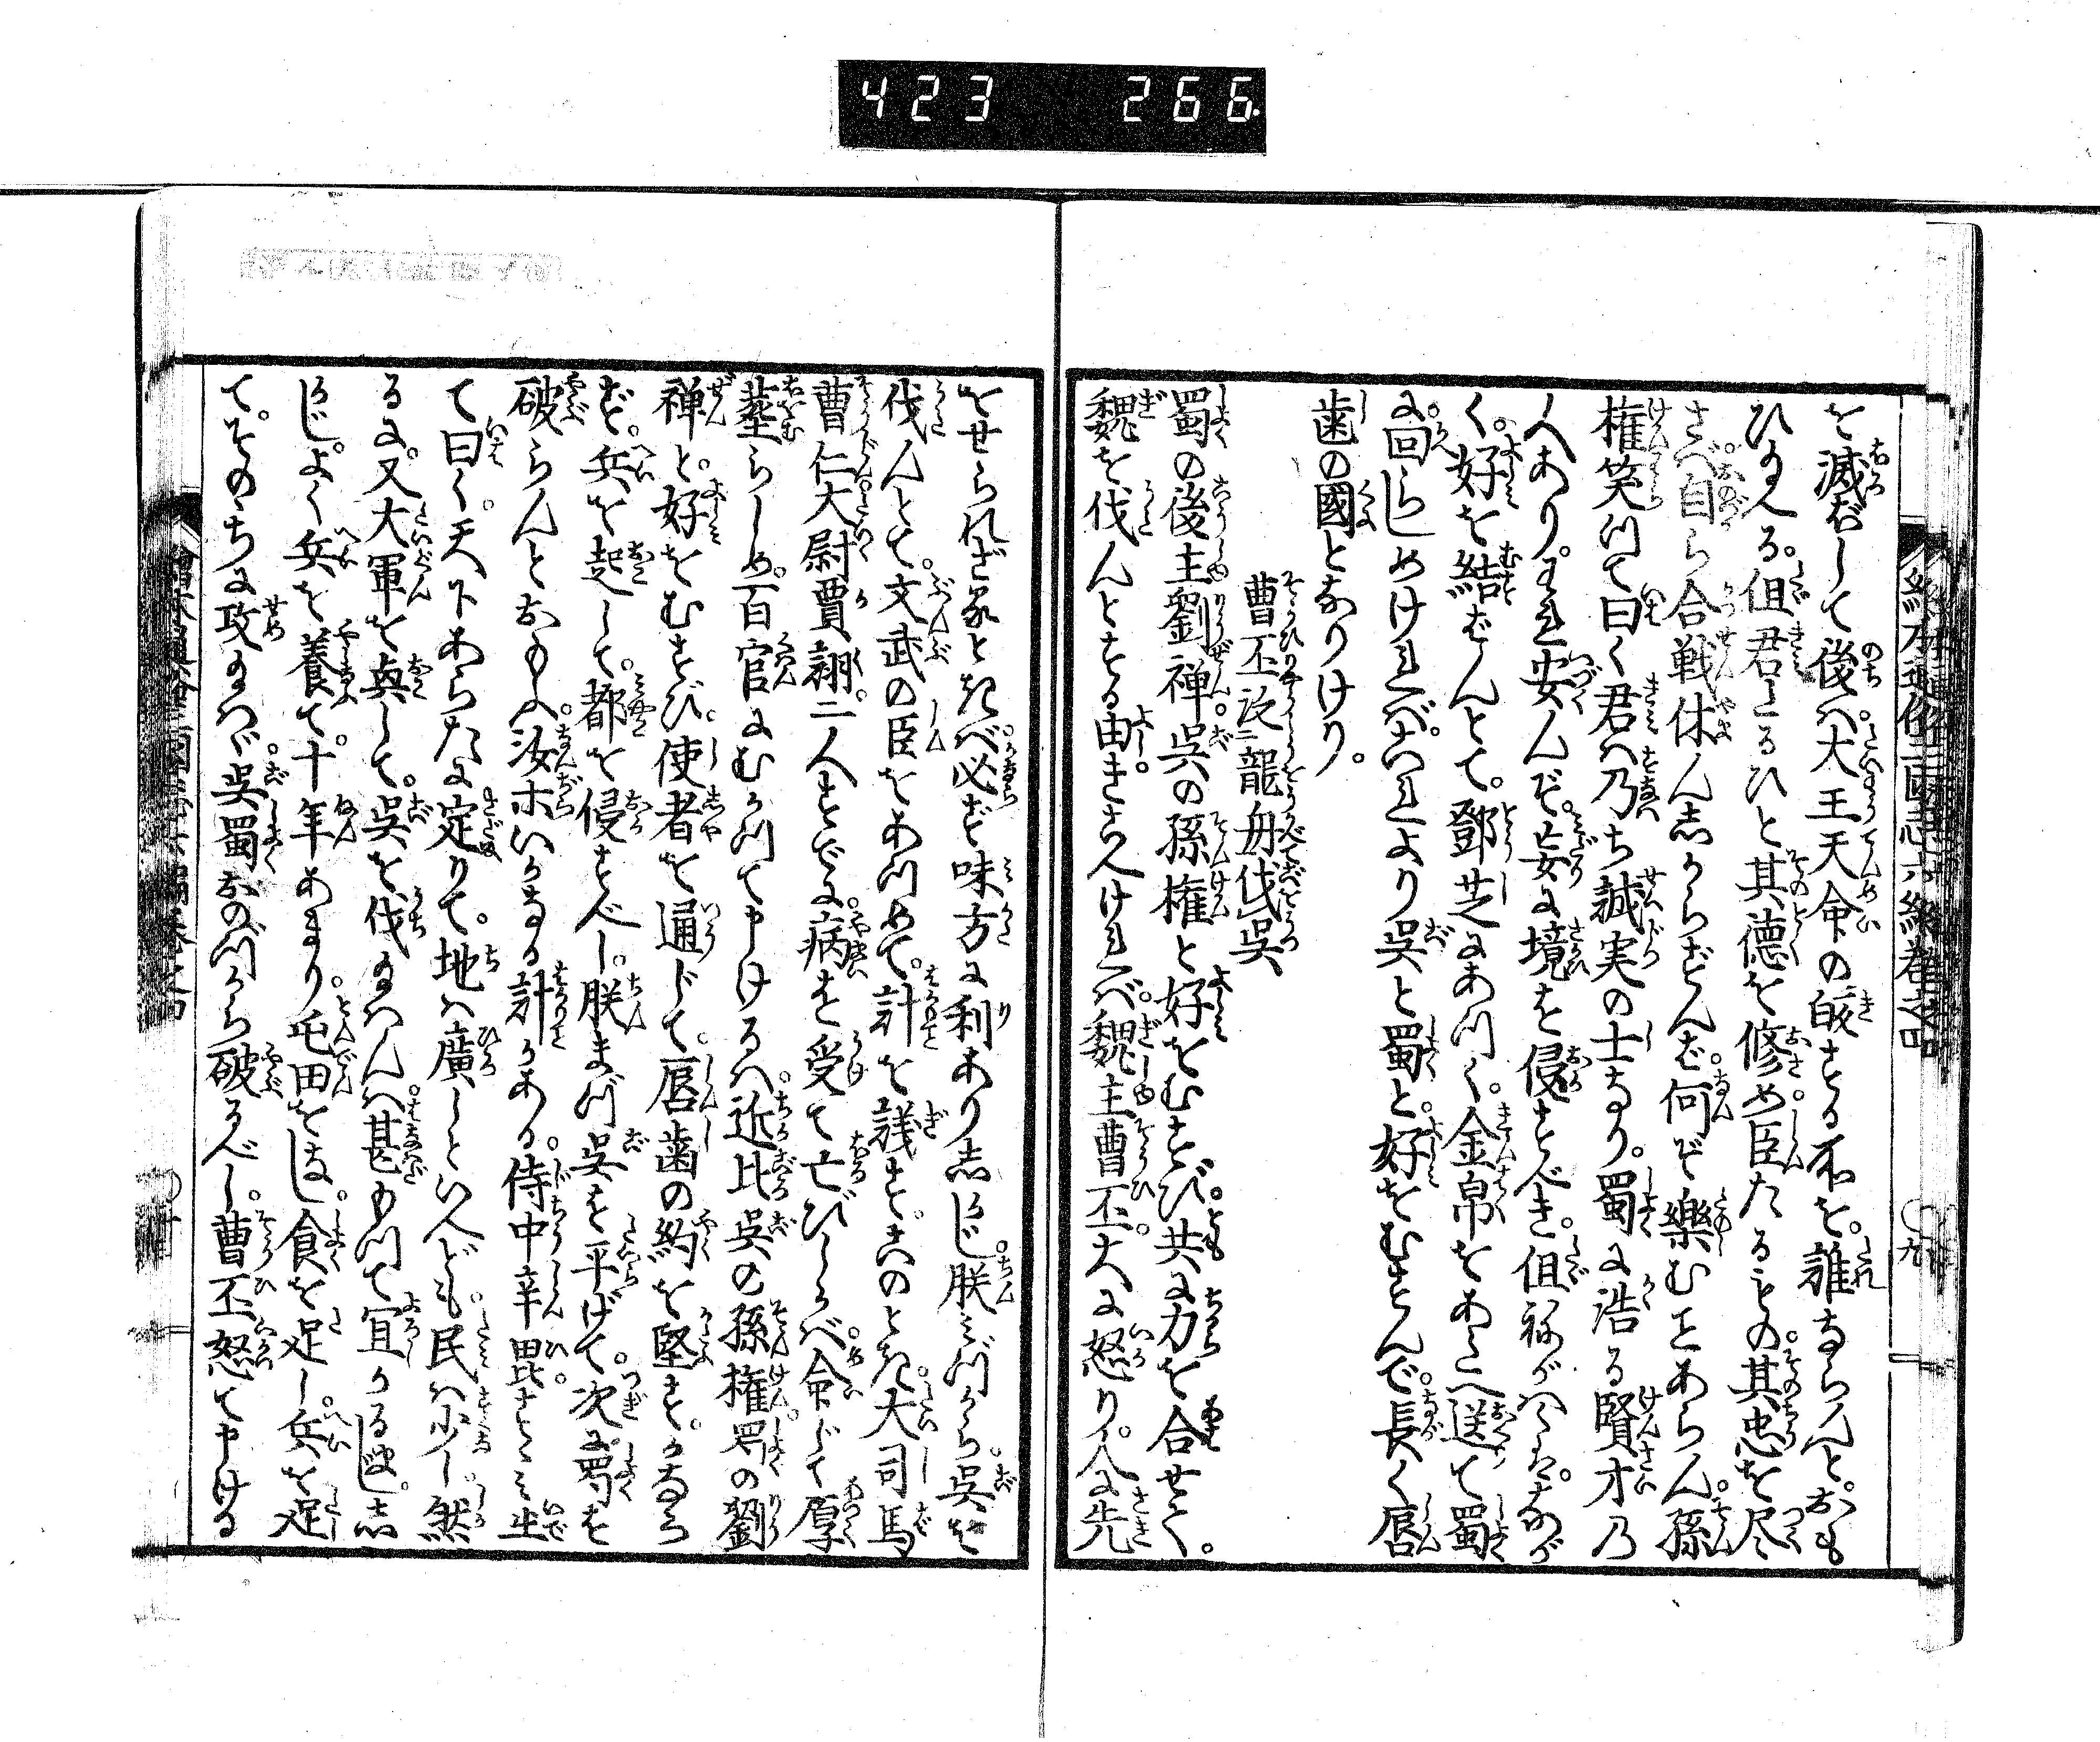 423 266
を滅ぼして後ハ大王天命の皈する所を誰ならんとおも
ひ玉へる但君たるひと其徳を修め臣たるもの其忠を尽
さバ自ら合戦休ん志からずんバ何ぞ樂むことあらん孫
権笑つて曰く君ハ乃ち誠実の士なり蜀に浩る賢才乃
人ありわれ安んぞ妄に境を侵すべき但ねがハくハなが
く好を結ばんとて鄧芝にあつく金帛をあたへ送て蜀
に回らしめけれバこれより呉と蜀と好をむすんで長く唇
歯の國となりけり。
曹丕汎龍舟伐呉
蜀の後主劉禅呉の孫権と好をむすび共に力を合せて。
魏を伐んとする由きこへけれバ魏主曹丕大に怒り人に先
をせられざるときバ必ず味方に利あり志かじ朕ミづから呉を
伐んとて文武の臣をあつめて計を議すこのとき大司馬
曹仁大尉賈詡二人すでに病を受て亡びしかバ命じて厚
葬らしめ百官にむかつて申けるハ近比呉の孫権蜀の劉
禅と好をむすび使者を通じて唇歯の約を堅すかなら
ず兵を起して都を侵すべし朕まづ呉を平げて次に蜀を
破らんとおもふ汝ホいかなる計かある侍中辛毘すゝミ出
て曰く天下あらたに定りて地ハ廣しといへども民ハ少し然
るに又大軍を興して呉を伐玉ハんハ甚もつて宜かるまじ志
かじよく兵を養て十年あまり屯田をなし食を足し兵を足
てそのちに攻玉ハゞ呉蜀おのづから破るべし曹丕怒て申ける